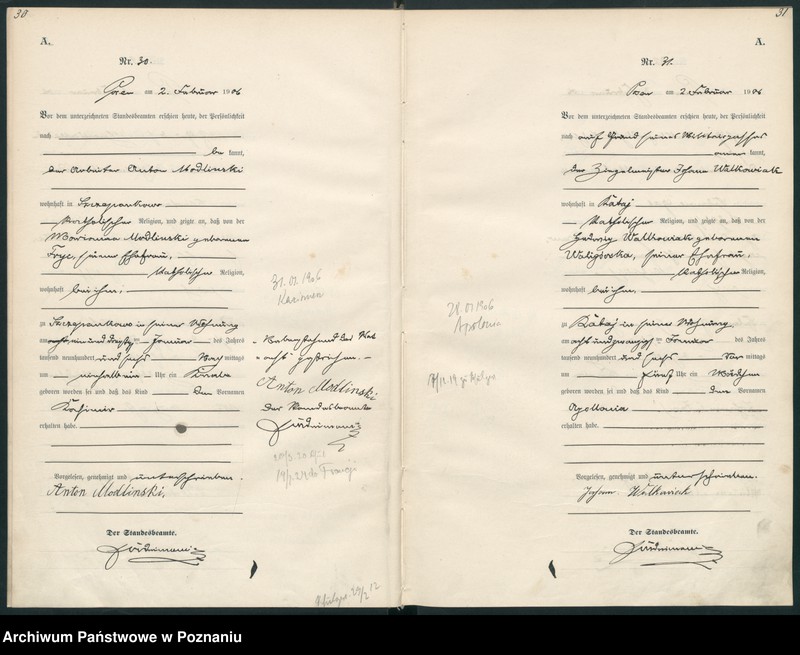 30
A.
Nr. 30.
Posen am 2. Februar 1906
Vor dem unterzeichneten Standesbeamten erschien heute, der Persönlichkeit
nach
be kannt,
der Arbeiter Anton Modlinski
wohnhaft in Szczepankowo
katholischer Religion, und zeigte an, daß von der
Marianna Modlinski geborenen
seiner Ehefrau,
katholischer Religion,
wohnhaft bei ihm,
zu Szczepankowo in seiner Wohnung
am ein und dreißig ten Januar des Jahres
tausend neunhundert und sechs Nach mittags
um einhalb ein Uhr ein Knabe
geboren worden sei und daß das Kind den Vornamen
Kasimir
erhalten habe.
Vorgelesen, genehmigt und unterschrieben.
Anton Modlinski.
Der Standesbeamte.
31.01.1906
Kazimierz
Vorbenstehend
acht gestrichen. –
Anton Modlinski
Der Standesbeamte
31
A.
Nr. 31.
Posen am 2 Februar 1906
Vor dem unterzeichneten Standesbeamten erschien heute, der Persönlichkeit
nach auf Grund seines Militärpasses
kannt,
der Ziegelmeister Johann Walkowiak
wohnhaft in Kataj
katholischer Religion, und zeigte an, daß von der
Hedwig Walkowiak geborenen
Waligorska, seiner Ehefrau,
katholischer Religion,
wohnhaft bei ihm,
zu Kataj in seiner Wohnung
am acht und zwanzigsten Januar des Jahres
tausend neunhundert und sechs Vor mittags
um fünf Uhr ein Mädchen
geboren worden sei und daß das Kind den Vornamen
Apollonia
erhalten habe.
Vorgelesen, genehmigt und unterschrieben.
Johann Walkowiak
Der Standesbeamte.
28.01.1906
Apolonia
Archiwum Państwowe w Poznaniu